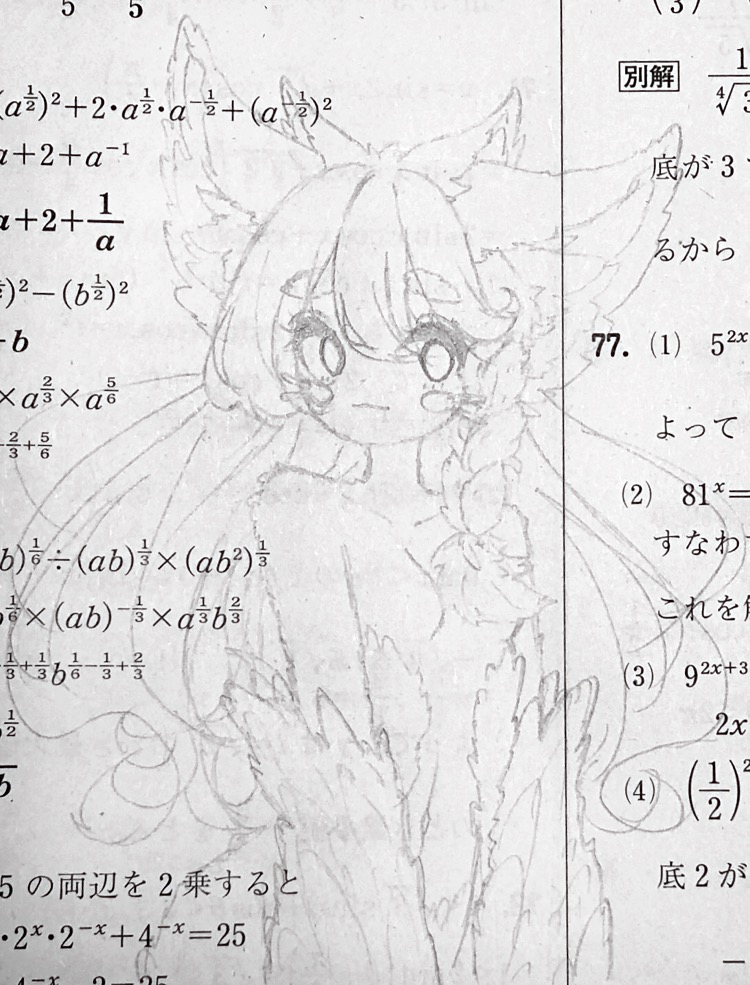 5 5
(a^{\frac{1}{2}})²+2・a^{\frac{1}{2}}・a^{-\frac{1}{2}}+(a^{-\frac{1}{2}})²
a+2+a⁻¹
a+2+\frac{1}{a}
)²−(b^{\frac{1}{2}})²
b
×a^{\frac{2}{3}}×a^{\frac{5}{6}}
\frac{2}{3}+\frac{5}{6}
b)^{\frac{1}{6}}÷(ab)^{\frac{1}{3}}×(ab²)^{\frac{1}{3}}
b^{\frac{1}{6}}×(ab)^{-\frac{1}{3}}×a^{\frac{1}{3}}b^{\frac{2}{3}}
\frac{1}{3}+\frac{1}{3}b^{\frac{1}{6}-\frac{1}{3}+\frac{2}{3}}
\frac{1}{2}
b
5 の両辺を 2 乗すると
・2ˣ・2⁻ˣ+4⁻ˣ=25
(3)
別解
底が 3
るから
77. (1) 5^{2x}
よって
(2) 81ˣ=
すなわ
これを
(3) 9^{2x+3}
2x
(4) (\frac{1}{2})²
底 2 が